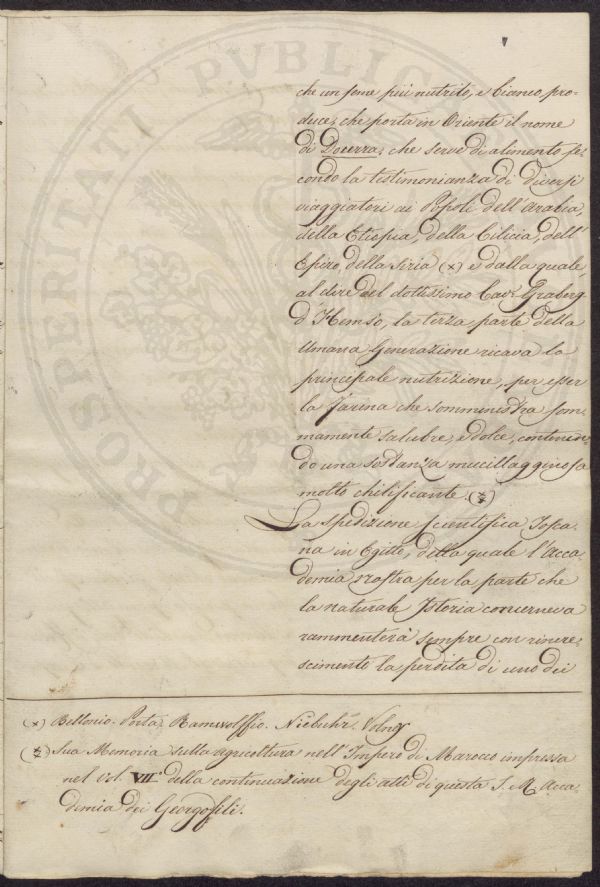 PROSPERITATI PVBLICAE
che un seme più nutrito, e bianco pro-
duce, che porta in Oriente il nome
di Docerra, che serve di alimento se-
condo la testimonianza di diversi
viaggiatori ai Popoli dell'Arabia,
della Etiopia, della Cilicia, dell'
Epiro, della Siria (x) e dalla quale
al dire del dottissimo Cav.r Graberg
d'Hemsò, la terza parte della
Umana Generazione ricava la
principale nutrizione, per esser
la farina che somministra som-
mamente salubre, e dolce, contenen-
do una sostanza mucillagginosa
molto chilificante. (z)
La spedizione scientifica Tosca-
na in Egitto, della quale l'Acca-
demia nostra per la parte che
la naturale Istoria concerneva
rammenterà sempre con rincre-
scimento la perdita di uno dei
(x) Bellonio. Porta. Ramwolffio. Niebuhr. Volney
(z) Sua Memoria sulla agricoltura nell'Impero di Marocco impressa
nel vol. VII.° della continuazione degli atti di questa I. R. Acca-
demia dei Georgofili.